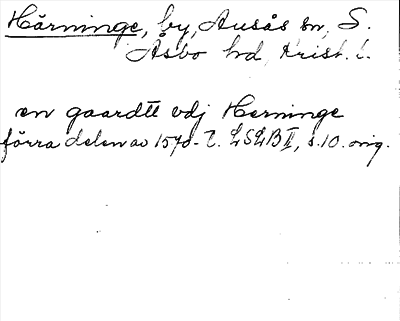 Härninge, by, Ausås sn, S.
Åsbo hd, Krist. l.
en gaardtt vdj Herninge
förra delen av 1570-t. LSLB II, s. 10. orig.